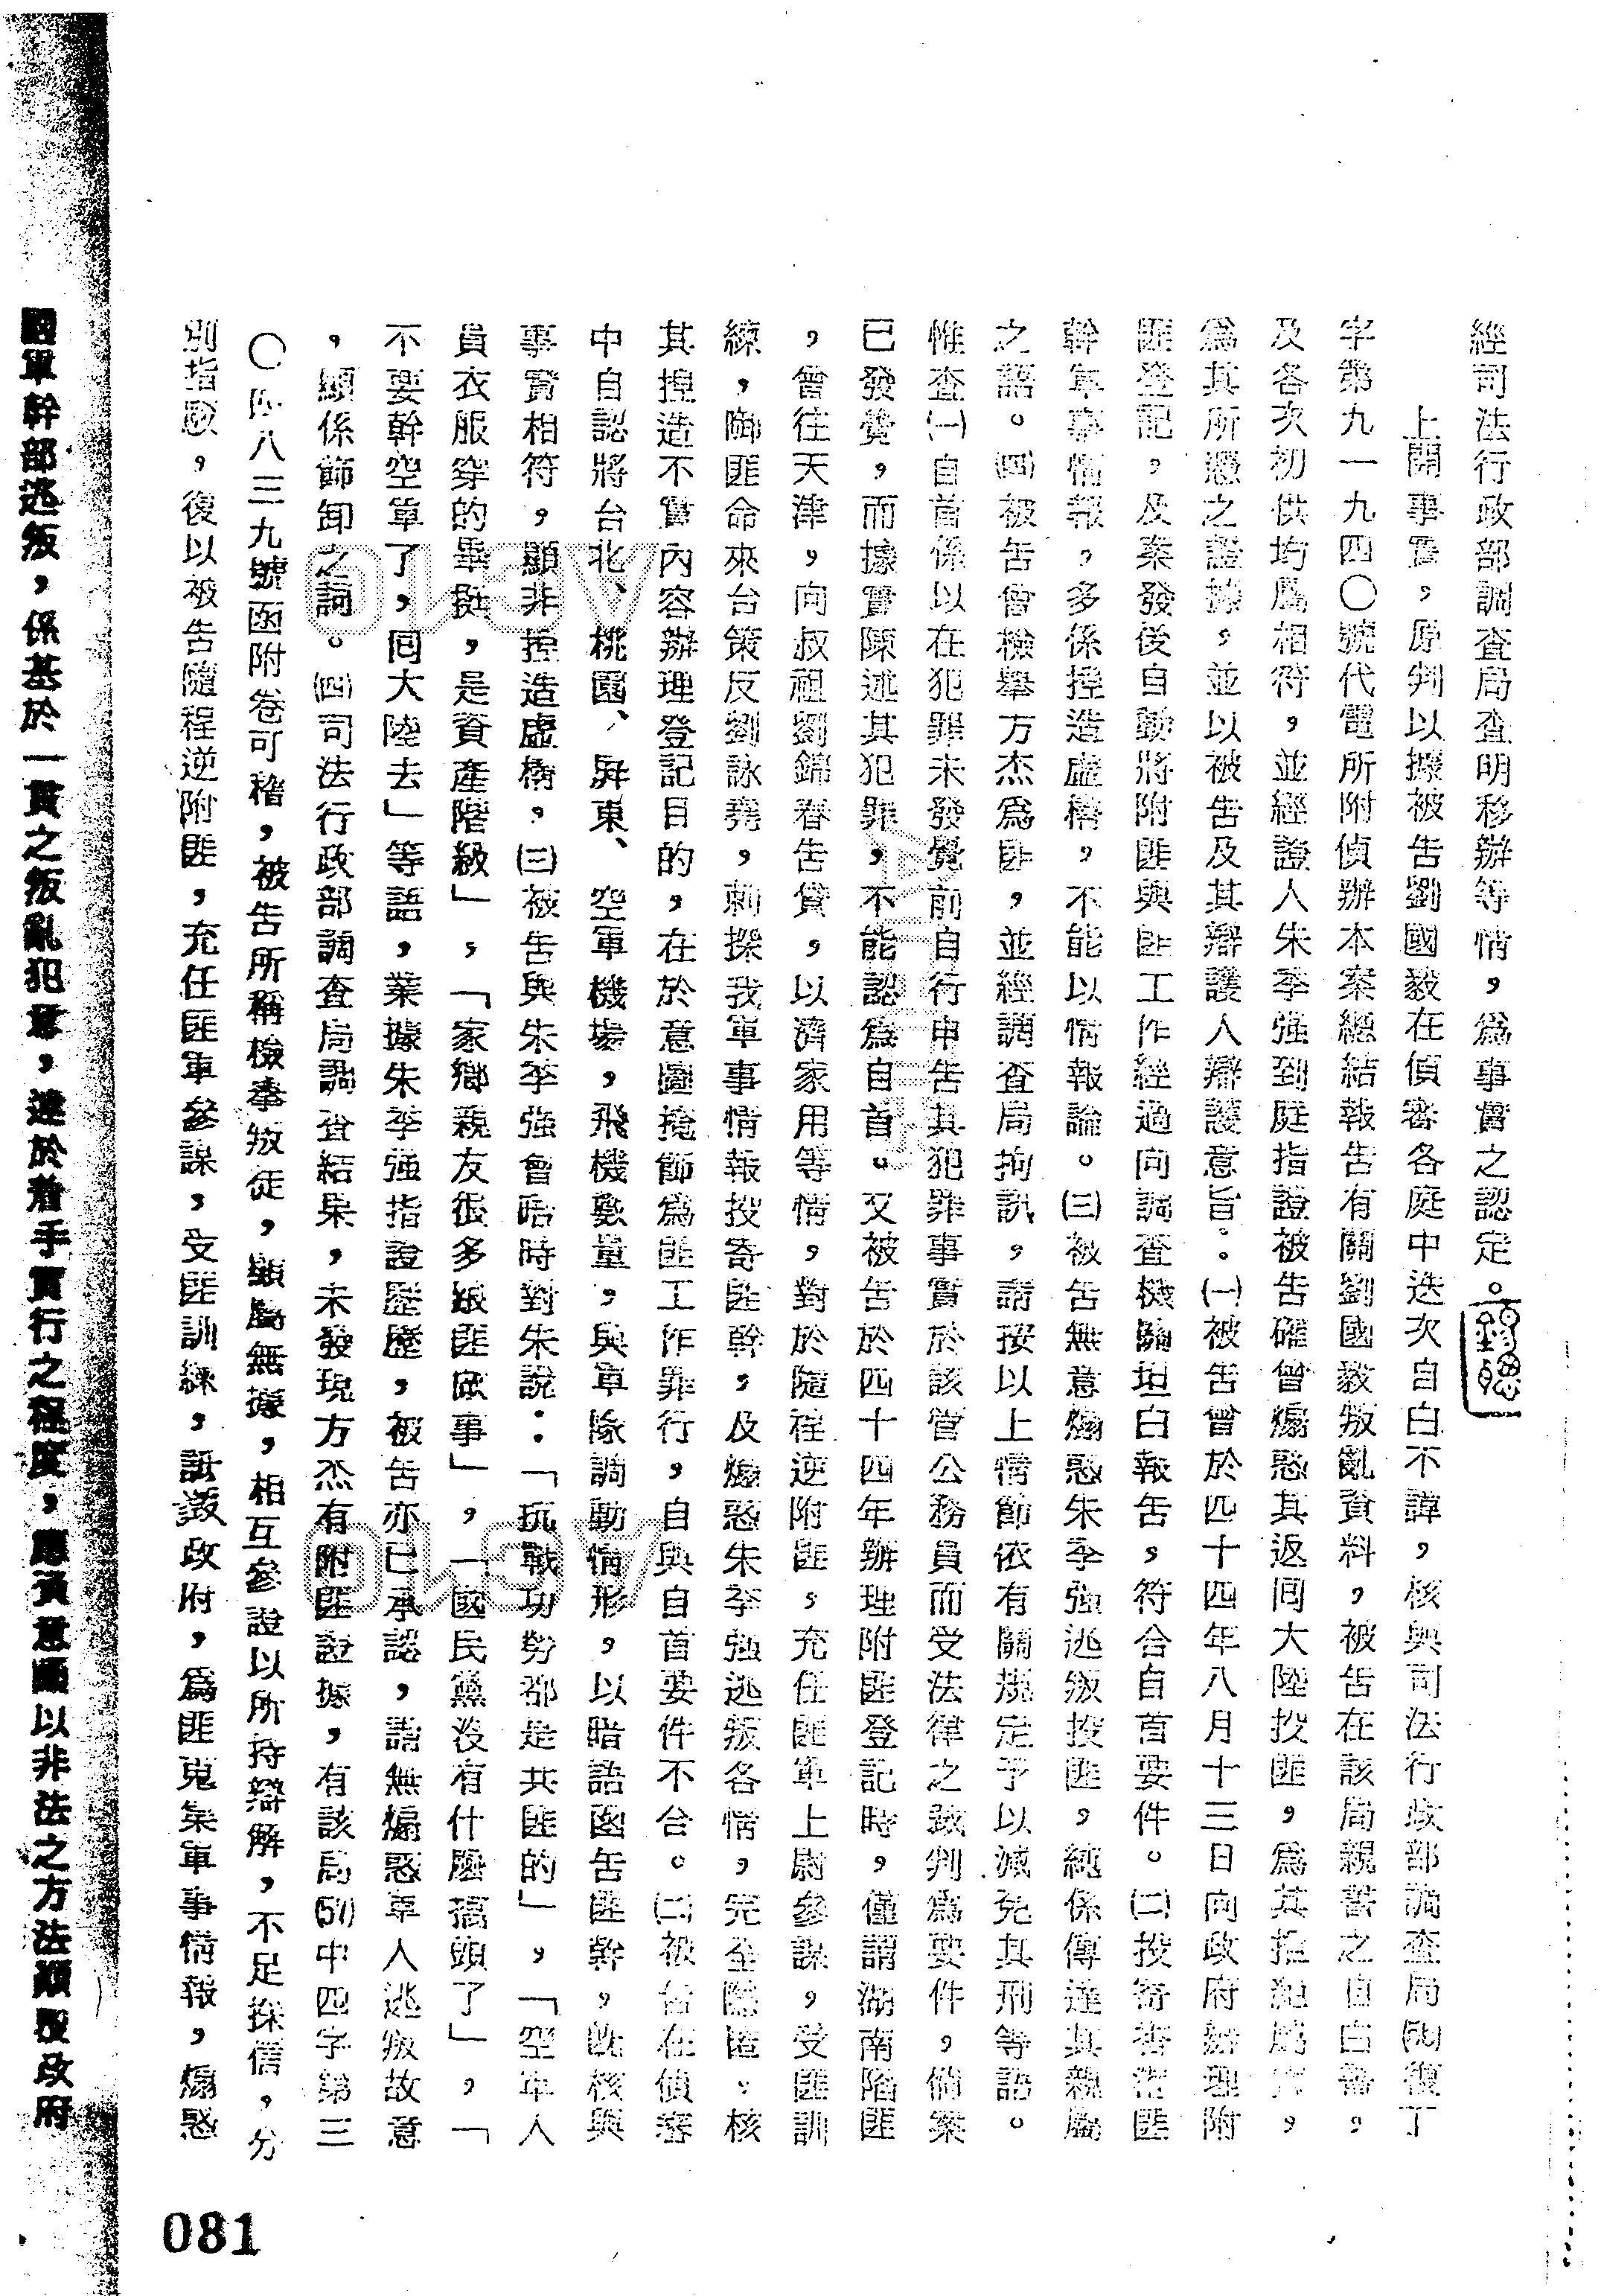 經司法行政部調查局查明移辦等情，為事實之認定。
上開事實，原判以據被告劉國毅在偵審各庭中迭次自白不諱，核與司法行政部調查局復丁
字第九一九四〇號代電所附偵辦本案總結報告有關劉國毅叛亂資料，被告在該局親書之自白書，
及各次初供均屬相符，並經證人朱李强到庭指證被告確曾煽惑其返回大陸投匪，為其
為其所憑之證據，並以被告及其辯護人辯護意旨：㈠被告曾於四十四年八月十三日向政府辦理附
匪登記，及案發後自動將附匪與匪工作經過向調查機關坦白報告，符合自首要件。㈡投寄
幹軍事情報，多係揑造虛構，不能以情報論。㈢被告無意煽惑朱李强逃叛投匪，純係傳達其親屬
之語。㈣被告曾檢舉方杰為匪，並經調查局拘訊，請按以上情節依有關規定予以減免其刑等語。
惟查㈠自首係以在犯罪未發覺前自行申告其犯罪事實於該管公務員而受法律之裁判為要件，倘案
已發覺，而據實陳述其犯罪，不能認為自首。又被告於四十四年辦理附匪登記時，僅謂湖南陷匪
，曾往天津，向叔祖劉錦春告貸，以濟家用等情，對於隨程逆附匪，充任匪軍上尉參謀，受匪訓
練，啣匪命來台策反劉詠堯，刺探我軍事情報投寄匪幹，及煽惑朱李强逃叛各情，完全隱匿。核
其揑造不實內容辦理登記目的，在於意圖掩飾為匪工作罪行，自與自首要件不合。㈡被告在偵審
中自認將台北、桃園、屏東、空軍機場，飛機數量，與軍隊調動情形，以暗語函告匪幹，既核與
事實相符，顯非揑造虛構，㈢被告與朱李强會晤時對朱說：「抗戰功勞都是共匪的」，「空軍人
員衣服穿的畢挺，是資產階級」，「家鄉親友很多跟匪做事」，「國民黨沒有什麽搞頭了」，「
不要幹空軍了，回大陸去」等語，業據朱李强指證歷歷，被告亦已承認，謂無煽惑軍人逃叛故意
，顯係飾卸之詞。㈣司法行政部調查局調查結果，未發現方杰有附匪證據，有該局(51)中四字第三
〇八三九號函附卷可稽，被告所稱檢舉叛徒，顯屬無據，相互參證以所持辯解，不足採信，分
別指駁，復以被告隨程逆附匪，充任匪軍參謀，受匪訓練，詆譭政府，為匪蒐集軍事情報，煽惑
國軍幹部逃叛，係基於一貫之叛亂犯意，達於着手實行之程度，應負意圖以非法之方法顛覆政府
081